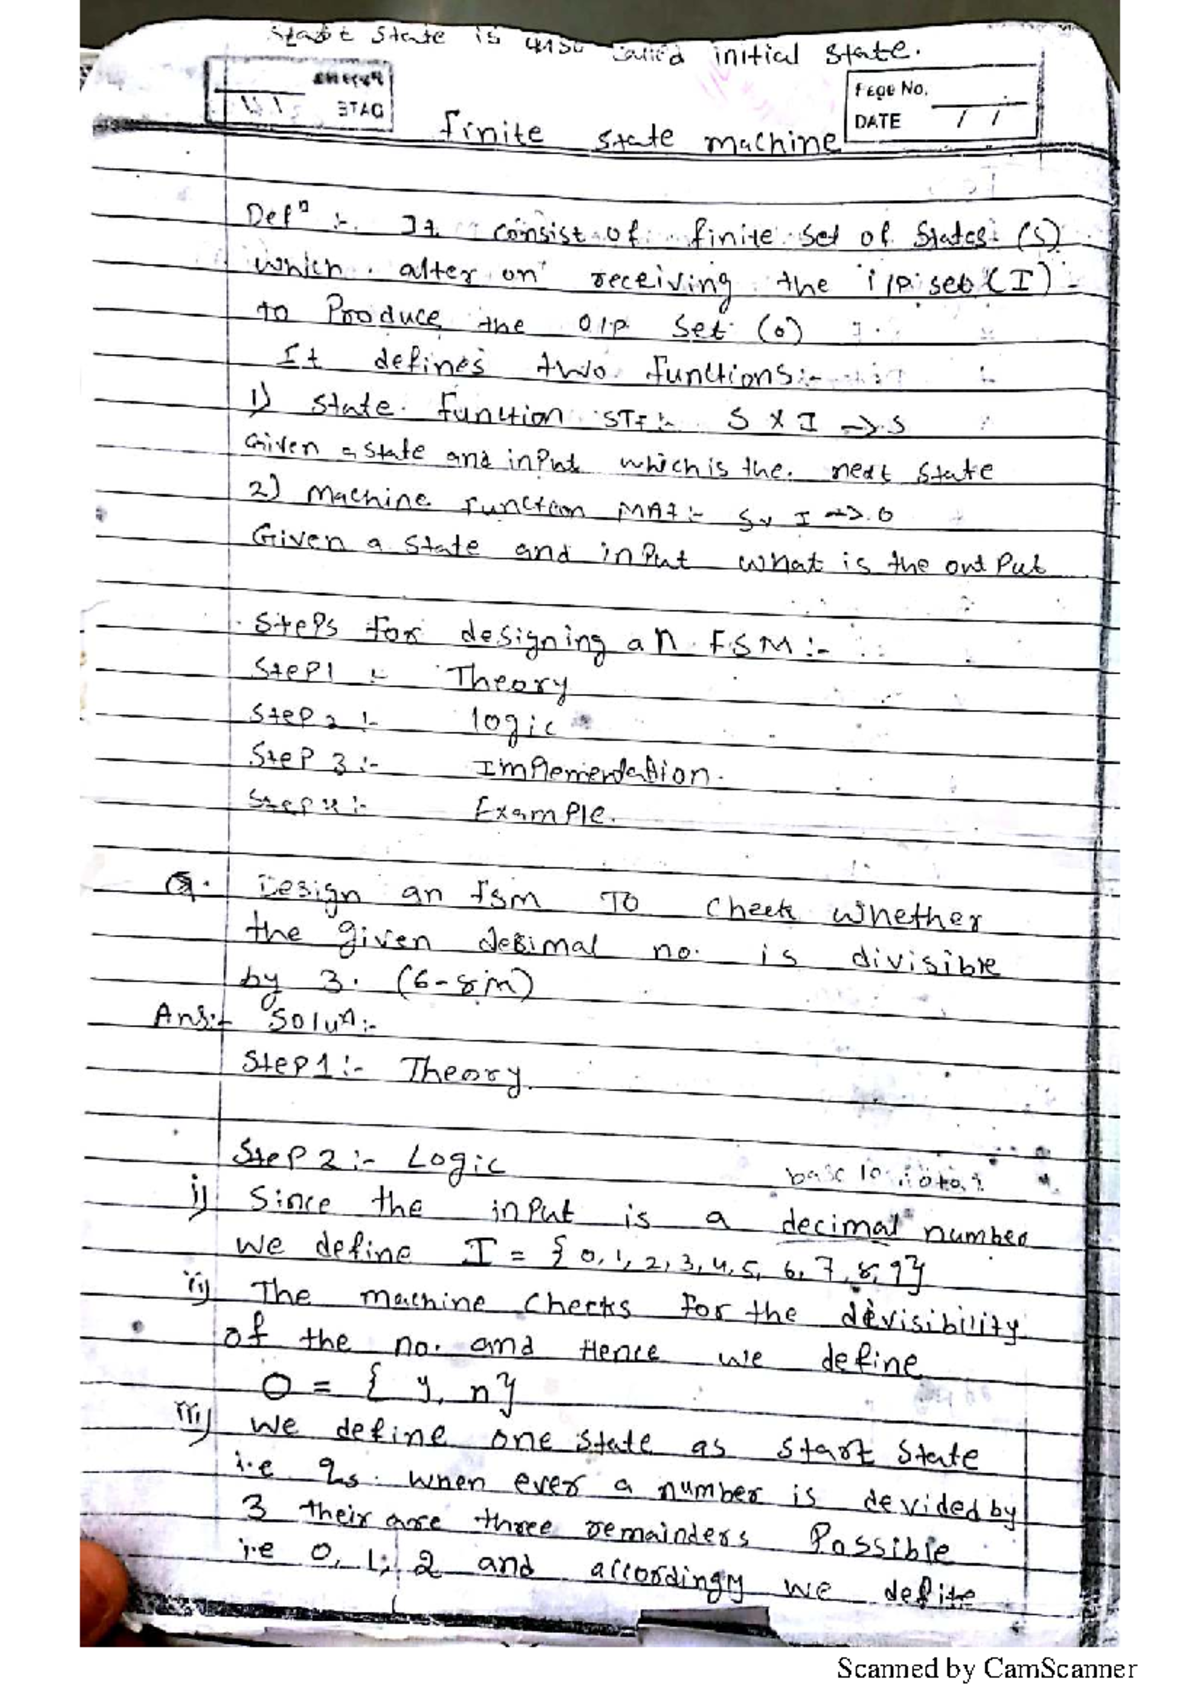 Start state is also called initial state.
PAGE No.
DATE / /
finite state machine
Defⁿ :- It consist of finite set of states (S)
which alter on receiving the i/p set (I)
to Produce the O/P set (O)
It defines two functions:-
1) state function STF:- S X I → S
Given a state and inPut which is the next state
2) Machine function MAF:- S x I → O
Given a state and inPut what is the outPut
Steps for designing an FSM:-
Step1 :- Theory
Step 2 :- logic
Step 3 :- Implementation.
Step 4 :- Example.
Q. Design an fsm TO check whether
the given decimal no. is divisible
by 3. (6-8M)
Ans:- Soluⁿ:-
Step1 :- Theory
Step 2 :- Logic
base 10
i) Since the inPut is a decimal number
we define I = { 0, 1, 2, 3, 4, 5, 6, 7, 8, 9}
ii) The machine checks for the devisibility
of the no. and Hence we define
O = { y, n}
iii) we define one state as start state
i.e qs. when ever a number is devided by
3 their are three remainders Possible
i.e 0, 1, 2 and accordingy we define
Scanned by CamScanner